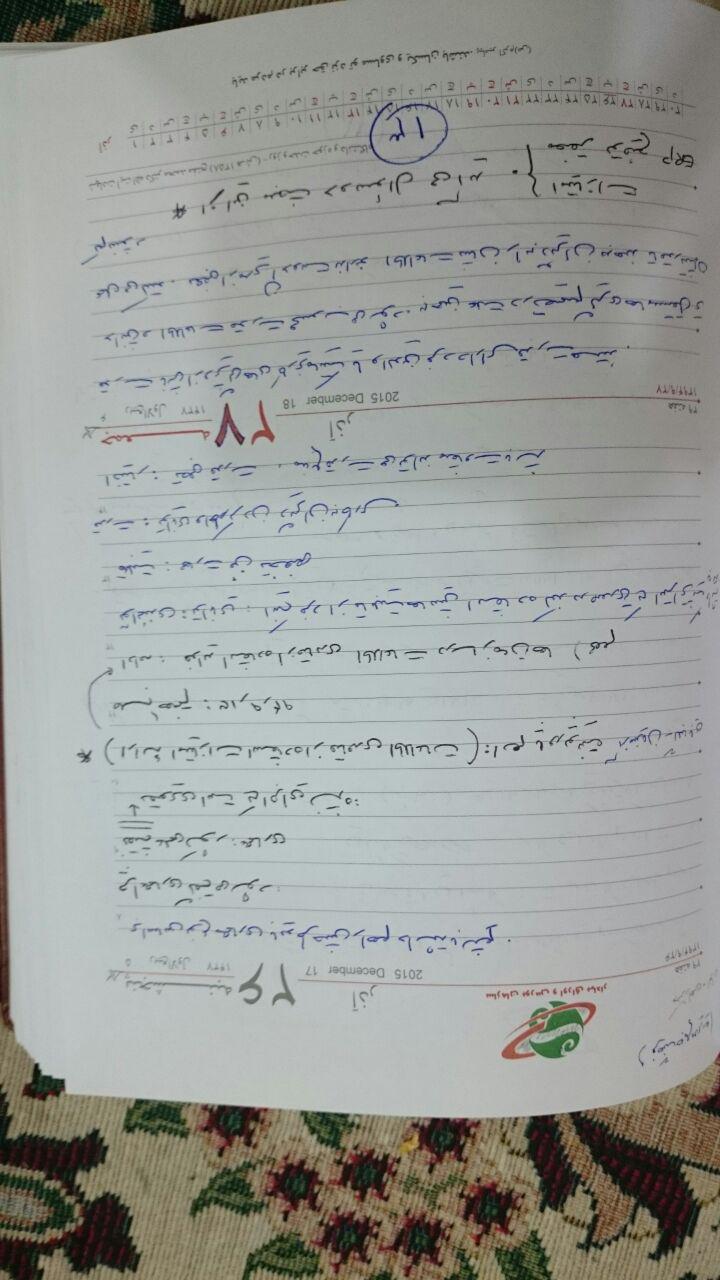 سازمان بورس و اوراق بهادار
پنجشنبه ۲۶ آذر
۵ ربیع‌الاول ۱۴۳۷
2015 December 17
هفته ۳۹
۱۳۹۴/۹/۲۶
بر اساس نوع معماری باید طرحش را هم داشته باشیم .
چرا معماری گفته می شود :
نقشه علمی کشور : معماری
تصویری است که اجرای نشده :
* ( ارائه امتیازات استفاده از فناوری اطلاعات ) :
جلسه هفتم : ۹۴,۹,۱۳
ادامه : فواید استفاده از فناوری اطلاعات در سازمان ها ( مهم
توانمندی : توانایی : اینکه فرد از قابلیت هایش استفاده کند در صورتی که
قابلیت : مهارت فن تخصص
قدرت : توانایی وادار کردن دیگران به کاری
اختیار : تفویض قدرت . منابع قدرت می تواند متفاوت باشد
جمعه ۲۷ آذر
۶ ربیع‌الاول ۱۴۳۷
2015 December 18
هفته ۳۹
۱۳۹۴/۹/۲۷
قدرت ناشی از ویژگی های کاریزماتیک یا والدین فرد دارای قدرت هستند .
دانش و اطلاعات قدرت محسوب می شود . به همین علت در تصمیم گیری ها مستقل تر
عمل می کنند . بعضی از مدیران دوست ندارند اطلاعات شان را به دیگران بدهند تا قدرتشان
کم نشود
* از این مبحث دو سؤال می آید . { امتیازات
مختصر توضیح ERP
شهادت آیت الله دکتر محمد مفتح (۱۳۵۸ هـ.ش) - روز وحدت حوزه و دانشگاه
۱۳
آذر ۱ ۲ ۳ ۴ ۵ ۶ ۷ ۸ ۹ ۱۰ ۱۱ ۱۲ ۱۳ ۱۴ ۱۵ ۱۶ ۱۷ ۱۸ ۱۹ ۲۰ ۲۱ ۲۲ ۲۳ ۲۴ ۲۵ ۲۶ ۲۷ ۲۸ ۲۹ ۳۰
ی د س چ پ ج ش ی د س چ پ ج ش ی د س چ پ ج ش ی د س چ پ ج ش ی د
باید مردم در برابر حق نزد تو مساوی و یکسان باشند. پیامبر اکرم(ص)